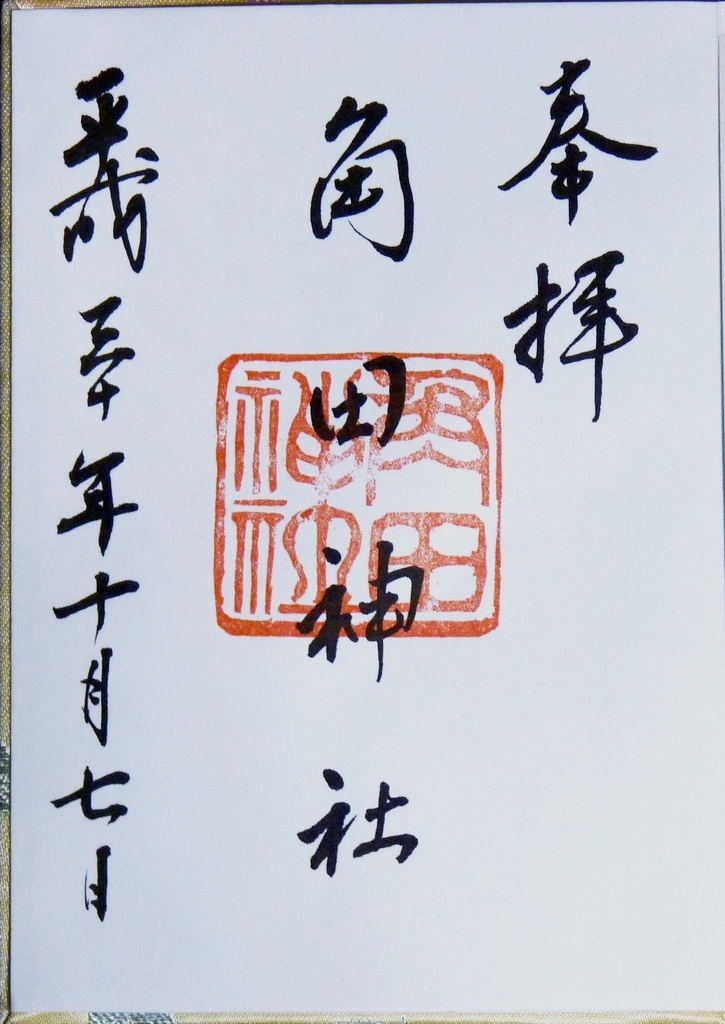 奉拝
角田神社
角田神社
平成三十年十月七日